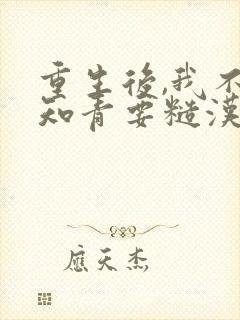 重生後,我不
知青要糙漢
應天杰